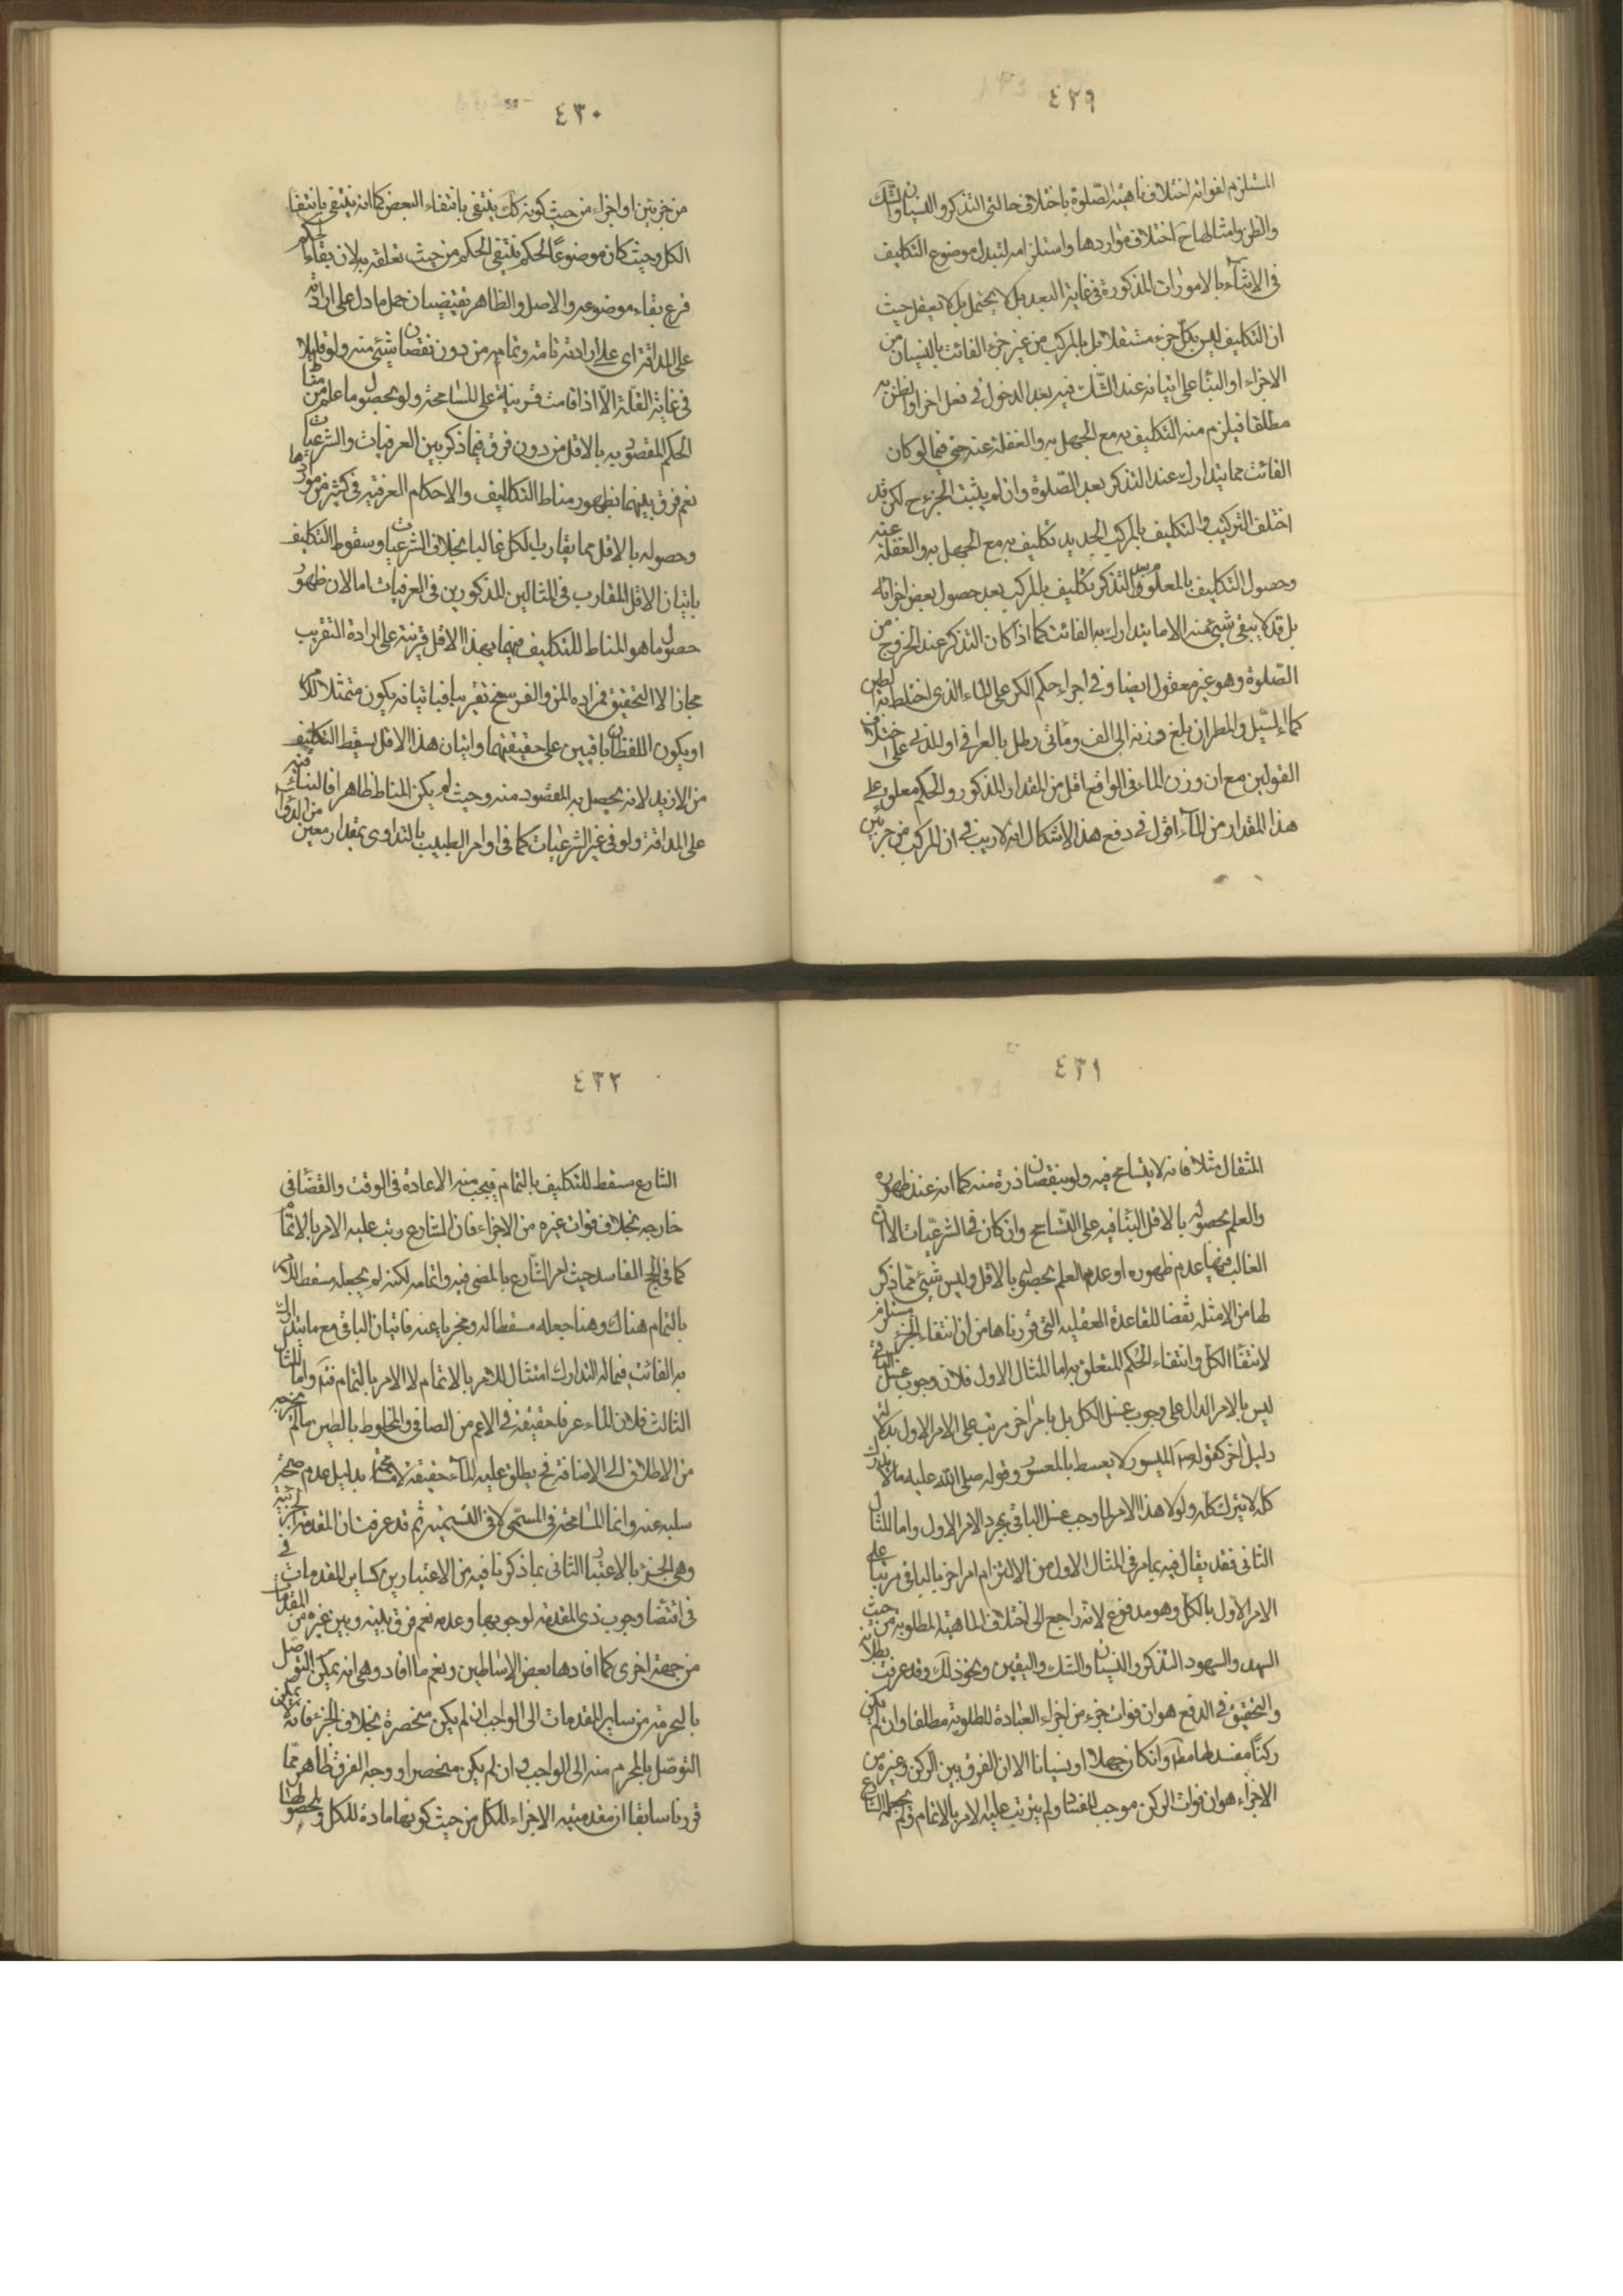 ٤٢٩
المستلزم لفواته اختلاف ماهية الصلوة باختلاف حالتي التذكر والنسيان والشك
والظن وامثالها ح اختلاف مواردها واستلزامه لتبدل موضوع التكاليف
في الاثناء بالامورات المذكورة في غاية البعد بل لا يحتمل بل لا يعقل حيث
ان التكليف ليس بكل جزء مستقلا بل بالمركب من غير جزء الفائت بالنسيان من
الاجزاء او البناء على اتيانه عند الشك فيه بعد الدخول في فعل اخر او بظن به
مطلقا فيلزم منه التكليف به مع الجهل به والغفلة عنه حتى فيما لو كان
الفائت مما يتدارك عند التذكر بعد الصلوة وان لم يثبت الجزء ح لكن قد
اختلف التركيب والتكليف بالمركب الجديد تكليف به مع الجهل به والغفلة عنه
وحصول التكليف بالمعلوم التذكر تكليف بالمركب بعد حصول بعض اجزائه
بل قد لا يبقى شيء منه الا ما يتدارك به الفائت كما اذا كان التذكر عند الخروج من
الصلوة وهو غير معقول ايضا وفي اجراء حكم الكر على الماء الذي اختلط به الطين
كماء السيل والمطر ان بلغ وزنه الى الف ومأتى رطل بالعراقي او المدني على اختلاف
القولين مع ان وزن الماء في الواقع اقل من المقدار المذكور والحكم معلق على
هذا المقدار من الماء اقول في دفع هذا الاشكال انه لا ريب في ان المركب من جزئين
٤٣٠
من جزئين او اجزاء من حيث كونه كك ينتفي بانتفاء البعض كما انه ينتفي بانتفاء
الكل وحيث كان موضوعا لحكم ينتفي الحكم من حيث تعلقه به لان بقاء الحكم
فرع بقاء موضوعه والاصل والظاهر يقتضيان حمل ما دل على ارادته
على المداقة اى على ارادته تامة وتمامه من دون نقصان شيء منه ولو قليلا
في غاية القلة الا اذا قامت قرينة على المسامحة ولو بحصول ما علم من مناط
الحكم المقصود به بالاقل من دون فرق فيما ذكر بين العرفيات والشرعيات
نعم فرق بينهما بظهور مناط التكاليف والاحكام العرفية في كثير من مواردها
وحصوله بالاقل بما يقارب الكل غالبا بخلاف الشرعيات وسقوط التكليف
باتيان الاقل المقارب في المثالين المذكورين في العرفيات اما لان ظهور
حصول ما هو المناط للتكليف فيهما بهذا الاقل قرينة على ارادة التقريب
مجازا لا التحقيق فمراده المن والفرسخ تقريبا فباتيانه يكون متمثلا للامر
او يكون اللفظان باقيين على حقيقتهما واتيان هذا الاقل يسقط التكليف
من الازيد لانه يحصل به المقصود منه وحيث لم يكن المناط ظاهرا فالبناء فيه
على المداقة ولو في غير الشرعيات كما في اوامر الطبيب بالتداوى بمقدار معين من الدواء
٤٣١
المثقال مثلا فانه لا يتسامح فيه ولو بنقصان ذرة منه كما انه عند ظهوره
والعلم بحصوله بالاقل البناء فيه على التسامح وان كان في الشرعيات الا ان
الغالب فيها عدم ظهوره او عدم العلم بحصوله بالاقل وليس شيء مما ذكر
لها من الامثلة نقضا للقاعدة العقلية التي قررناها من ان انتفاء الجزء مستلزم
لانتفاء الكل وانتفاء الحكم المتعلق به اما المثال الاول فلان وجوب غسل الباقي
ليس بالامر الدال على وجوب غسل الكل بل بامر اخر مرتب على الامر الاول بدلالة
دليل اخر كقوله ص الميسور لا يسقط بالمعسور وقوله صلى الله عليه ما لا يدرك
كله لا يترك كله ولولا هذا الامر لما وجب غسل الباقي بمجرد الامر الاول واما المثال
الثاني فقد يقال فيه بما مر في المثال الاول من الالتزام امر اخر بالباقي مرتبا على
الامر الاول بالكل وهو مدفوع لانه راجع الى اختلاف الماهية المطلوبة من حيث
العمد والسهو والتذكر والنسيان والشك واليقين ونحو ذلك وقد عرفت بطلانه
والتحقيق في الدفع هو ان فوات جزء من اجزاء العبادة المطلوبة مطلقا وان لم يكن
ركنا مفسد لها مطلقا وان كان جهلا او نسيانا الا ان الفرق بين الركن وغيره من
الاجزاء هو ان فوات الركن موجب للفساد ولم يترتب عليه الامر بالاتمام ولم يجعله الشارع
٤٣٢
الشارع مسقطا للتكليف بالتمام فيجب منه الاعادة في الوقت والقضاء في
خارجه بخلاف فوات غيره من الاجزاء فان الشارع رتب عليه الامر بالاتمام
كما في الحج الفاسد حيث امر الشارع بالمضي فيه واتمامه لكنه لم يجعله مسقطا للامر
بالتمام هناك وهنا جعله مسقطا له ومجزيا عنه فاتيان الباقي مع ما يتدارك
به الفائت فيما له التدارك امتثال للامر بالاتمام لا الامر بالتمام فتم واما المثال
الثالث فلان الماء عرفا حقيقة في الاعم من الصافي والمخلوط بالطين ما لم يخرجه
من الاطلاق الى الاضافة فح يطلق عليه الماء حقيقة لا مسامحة بدليل عدم صحة
سلبه عنه وانما المسامحة في المسمى لا في التسمية ثم قد عرفت ان المقدمة الجزئية
وهي الجزء بالاعتبار الثاني بما ذكرنا فيه من الاعتبارين كساير المقدمات في
اقتضاء وجوب ذي المقدمة لوجوبها وعدمه نعم فرق بينه وبين غيره من المقدمات
من جهة اخرى كما افادها بعض الاساطين ونعم ما افاد وهي انه يمكن التوصل
بالمحرمة من ساير المقدمات الى الواجب ان لم يكن منحصرة بخلاف الجزء فانه لا يمكن
التوصل بالمحرم منه الى الواجب وان لم يكن منحصرا ووجه الفرق ظاهر مما
قررنا سابقا ان مقدمية الاجزاء للكل من حيث كونها مادة للكل ولحصولها